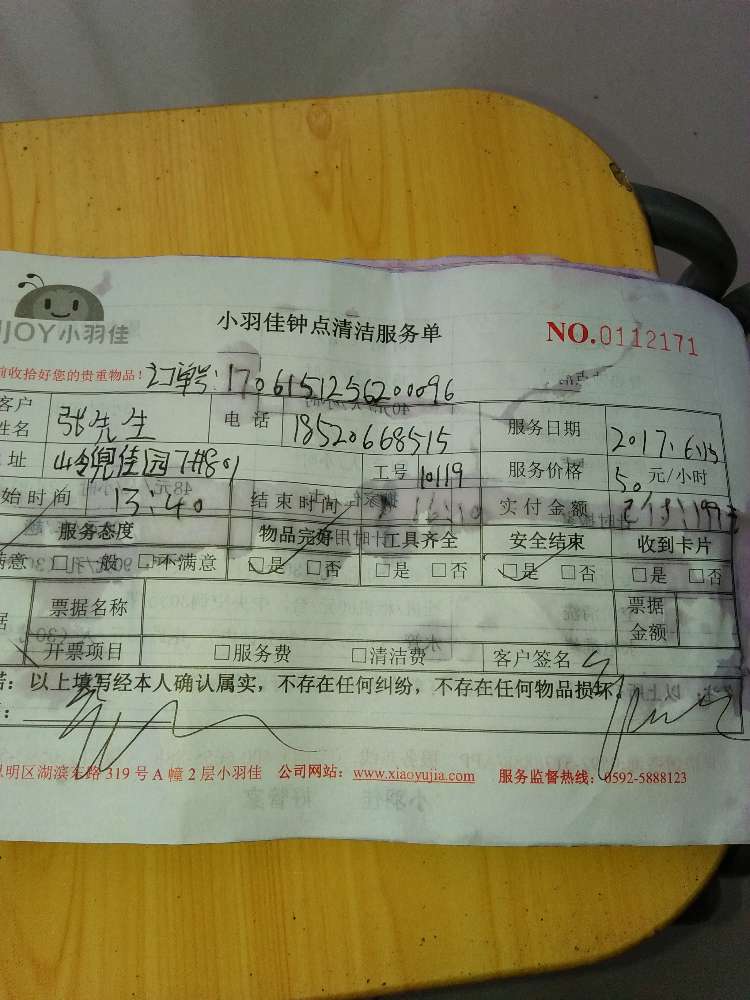 JOY小羽佳 小羽佳钟点清洁服务单 NO.0112171
前收拾好您的贵重物品! 订单号:1706151256200096
客户姓名 张先生 电话 18520668515 服务日期 2017.6.15
址 佳园7#801 工号 10119 服务价格 50元/小时
始时间 13:40 结束时间 实付金额
服务态度 物品完好 工具齐全 安全结束 收到卡片
满意 □一般 □不满意 □是 □否 □是 □否 □是 □否 □是 □否
据 票据名称 票据金额
开票项目 □服务费 □清洁费 客户签名
诺:以上填写经本人确认属实,不存在任何纠纷,不存在任何物品损坏。
思明区湖滨东路319号A幢2层小羽佳 公司网站:www.xiaoyujia.com 服务监督热线:0592-5888123